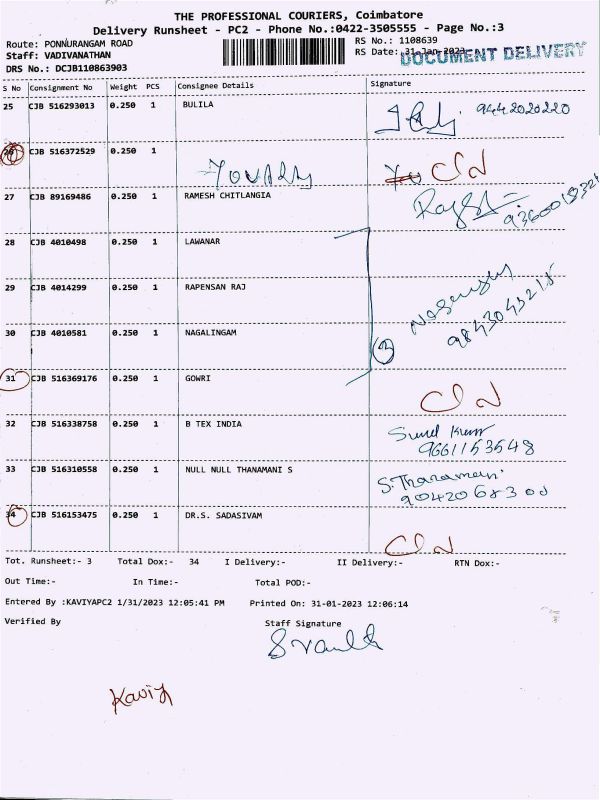 THE PROFESSIONAL COURIERS, Coimbatore
Delivery Runsheet - PC2 - Phone No.:0422-3505555 - Page No.:3
Route: PONNURANGAM ROAD
RS No.: 1108639
Staff: VADIVANATHAN
RS Date: 31-Jan-2023
DOCUMENT DELIVERY
DRS No.: DCJB110863903
S No Consignment No Weight PCS Consignee Details Signature
25 CJB 516293013 0.250 1 BULILA
9442020220
26 CJB 516372529 0.250 1
27 CJB 89169486 0.250 1 RAMESH CHITLANGIA
28 CJB 4010498 0.250 1 LAWANAR
29 CJB 4014299 0.250 1 RAPENSAN RAJ
9843043215
30 CJB 4010581 0.250 1 NAGALINGAM
3
31 CJB 516369176 0.250 1 GOWRI
32 CJB 516338758 0.250 1 B TEX INDIA
9661153548
33 CJB 516310558 0.250 1 NULL NULL THANAMANI S
S.Thanamani
9042068300
34 CJB 516153475 0.250 1 DR.S. SADASIVAM
Tot. Runsheet:- 3 Total Dox:- 34 I Delivery:- II Delivery:- RTN Dox:-
Out Time:- In Time:- Total POD:-
Entered By :KAVIYAPC2 1/31/2023 12:05:41 PM Printed On: 31-01-2023 12:06:14
Verified By Staff Signature
Kaviy